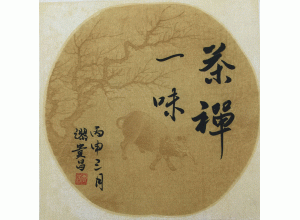 茶禪
一味
丙申三月